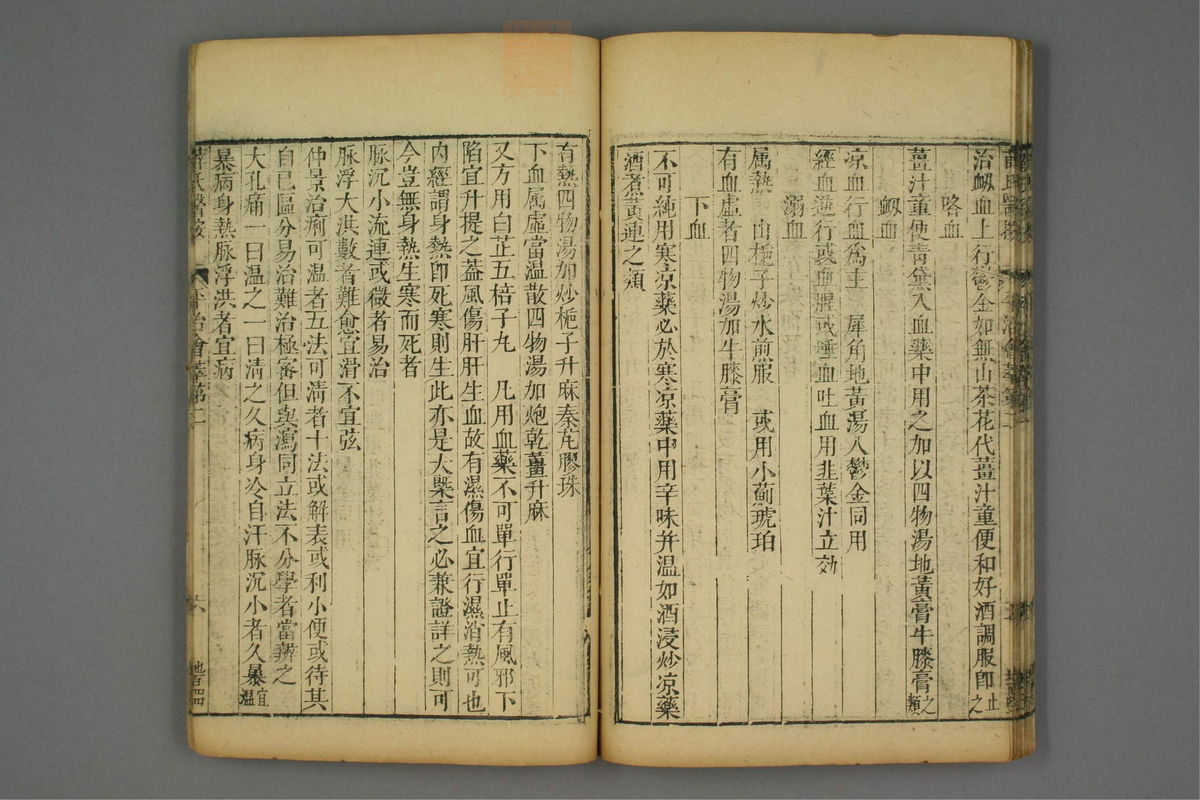 治衂血上行鬱金如無山茶花代薑汁童便和好酒調服即止之
咯血
薑汁童使靑黛入血藥中用之加以四物湯地黃膏牛膝膏之類
衂血
凉血行血爲主 犀角地黃湯入鬱金同用
經血逆行或血腥或唾血吐血用韭葉汁立効
溺血
属熱 山梔子炒水煎服 或用小薊琥珀
有血虛者四物湯加牛膝膏
下血
不可純用寒凉藥必於寒凉藥中用辛味并温如酒浸炒凉藥
酒煮黃連之類
有熱四物湯加炒梔子升麻秦芃膠珠
下血属虛當温散四物湯加炮乾薑升麻
又方用白芷五棓子丸 凡用血藥不可單行單止有風邪下
陷宜升提之蓋風傷肝肝生血故有濕傷血宜行濕消熱可也
内經謂身熱即死寒則生此亦是大槩言之必兼證詳之則可
今豈無身熱生寒而死者
脉沉小流連或微者易治
脉浮大洪數者難愈宜滑不宜弦
仲景治痢可温者五法可淸者十法或解表或利小便或待其
自已區分易治難治極審但與瀉同立法不分學者當辨之
大孔痛一曰温之一曰淸之久病身冷自汗脉沉小者久暴宜温
暴病身熱脉浮洪者宜病
薛氏醫按 平治會萃第二 六